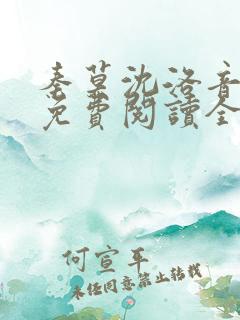 秦草沈洛音
免費閱讀全
何宣平
未经同意禁止转载